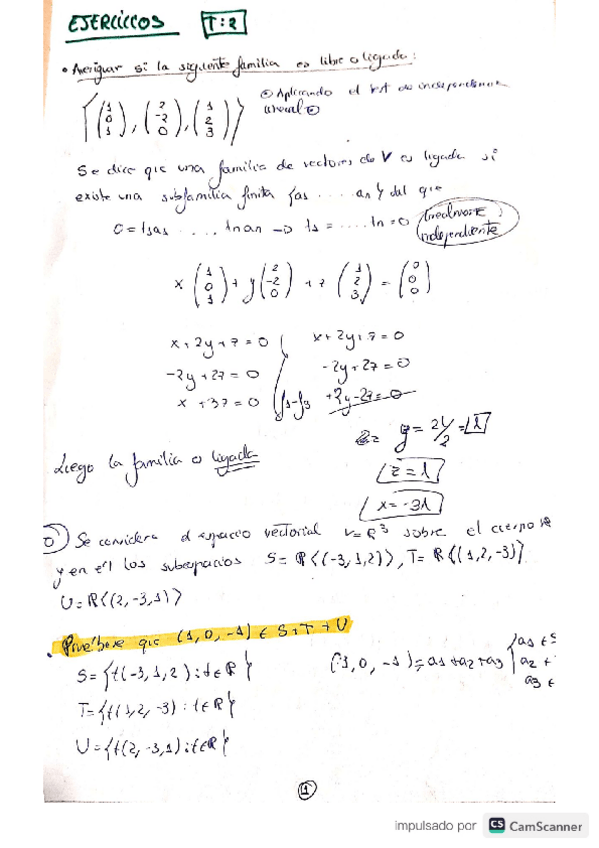 EJERCICIOS T:2
• Averiguar si la siguiente familia es libre o ligada:
{(1 0 1), (2 -2 0), (1 2 3)}
⊙ Aplicando el test de independencia
lineal ⊙
Se dice que una familia de vectores de V es ligada si
existe una subfamilia finita {a1 ..... an} tal que
0 = λ1a1 ..... λnan → λ1 = ..... λn = 0 (linealmente
independiente
x (1 0 1) + y (2 -2 0) + z (1 2 3) = (0 0 0)
x + 2y + z = 0 x + 2y + z = 0
-2y + 2z = 0 -2y + 2z = 0
x + 3z = 0 f1-f3 +2y-2z=0
y = 2λ/2 = λ
Luego la familia es ligada
z = λ
x = -3λ
Se considera el espacio vectorial V=R³ sobre el cuerpo R
y en él los subespacios S= R{(-3,1,2)}, T= R{(1,2,-3)}
U=R{(2,-3,1)}
• Pruébese que (1,0,-1) ∈ S+T+U
S={t(-3,1,2):t∈R} (-1,0,-1)=a1+a2+a3 { a1 ∈ S
T={t(1,2,-3):t∈R} a2 ∈
a3 ∈
U={t(2,-3,1):t∈R}
1
impulsado por CS CamScanner